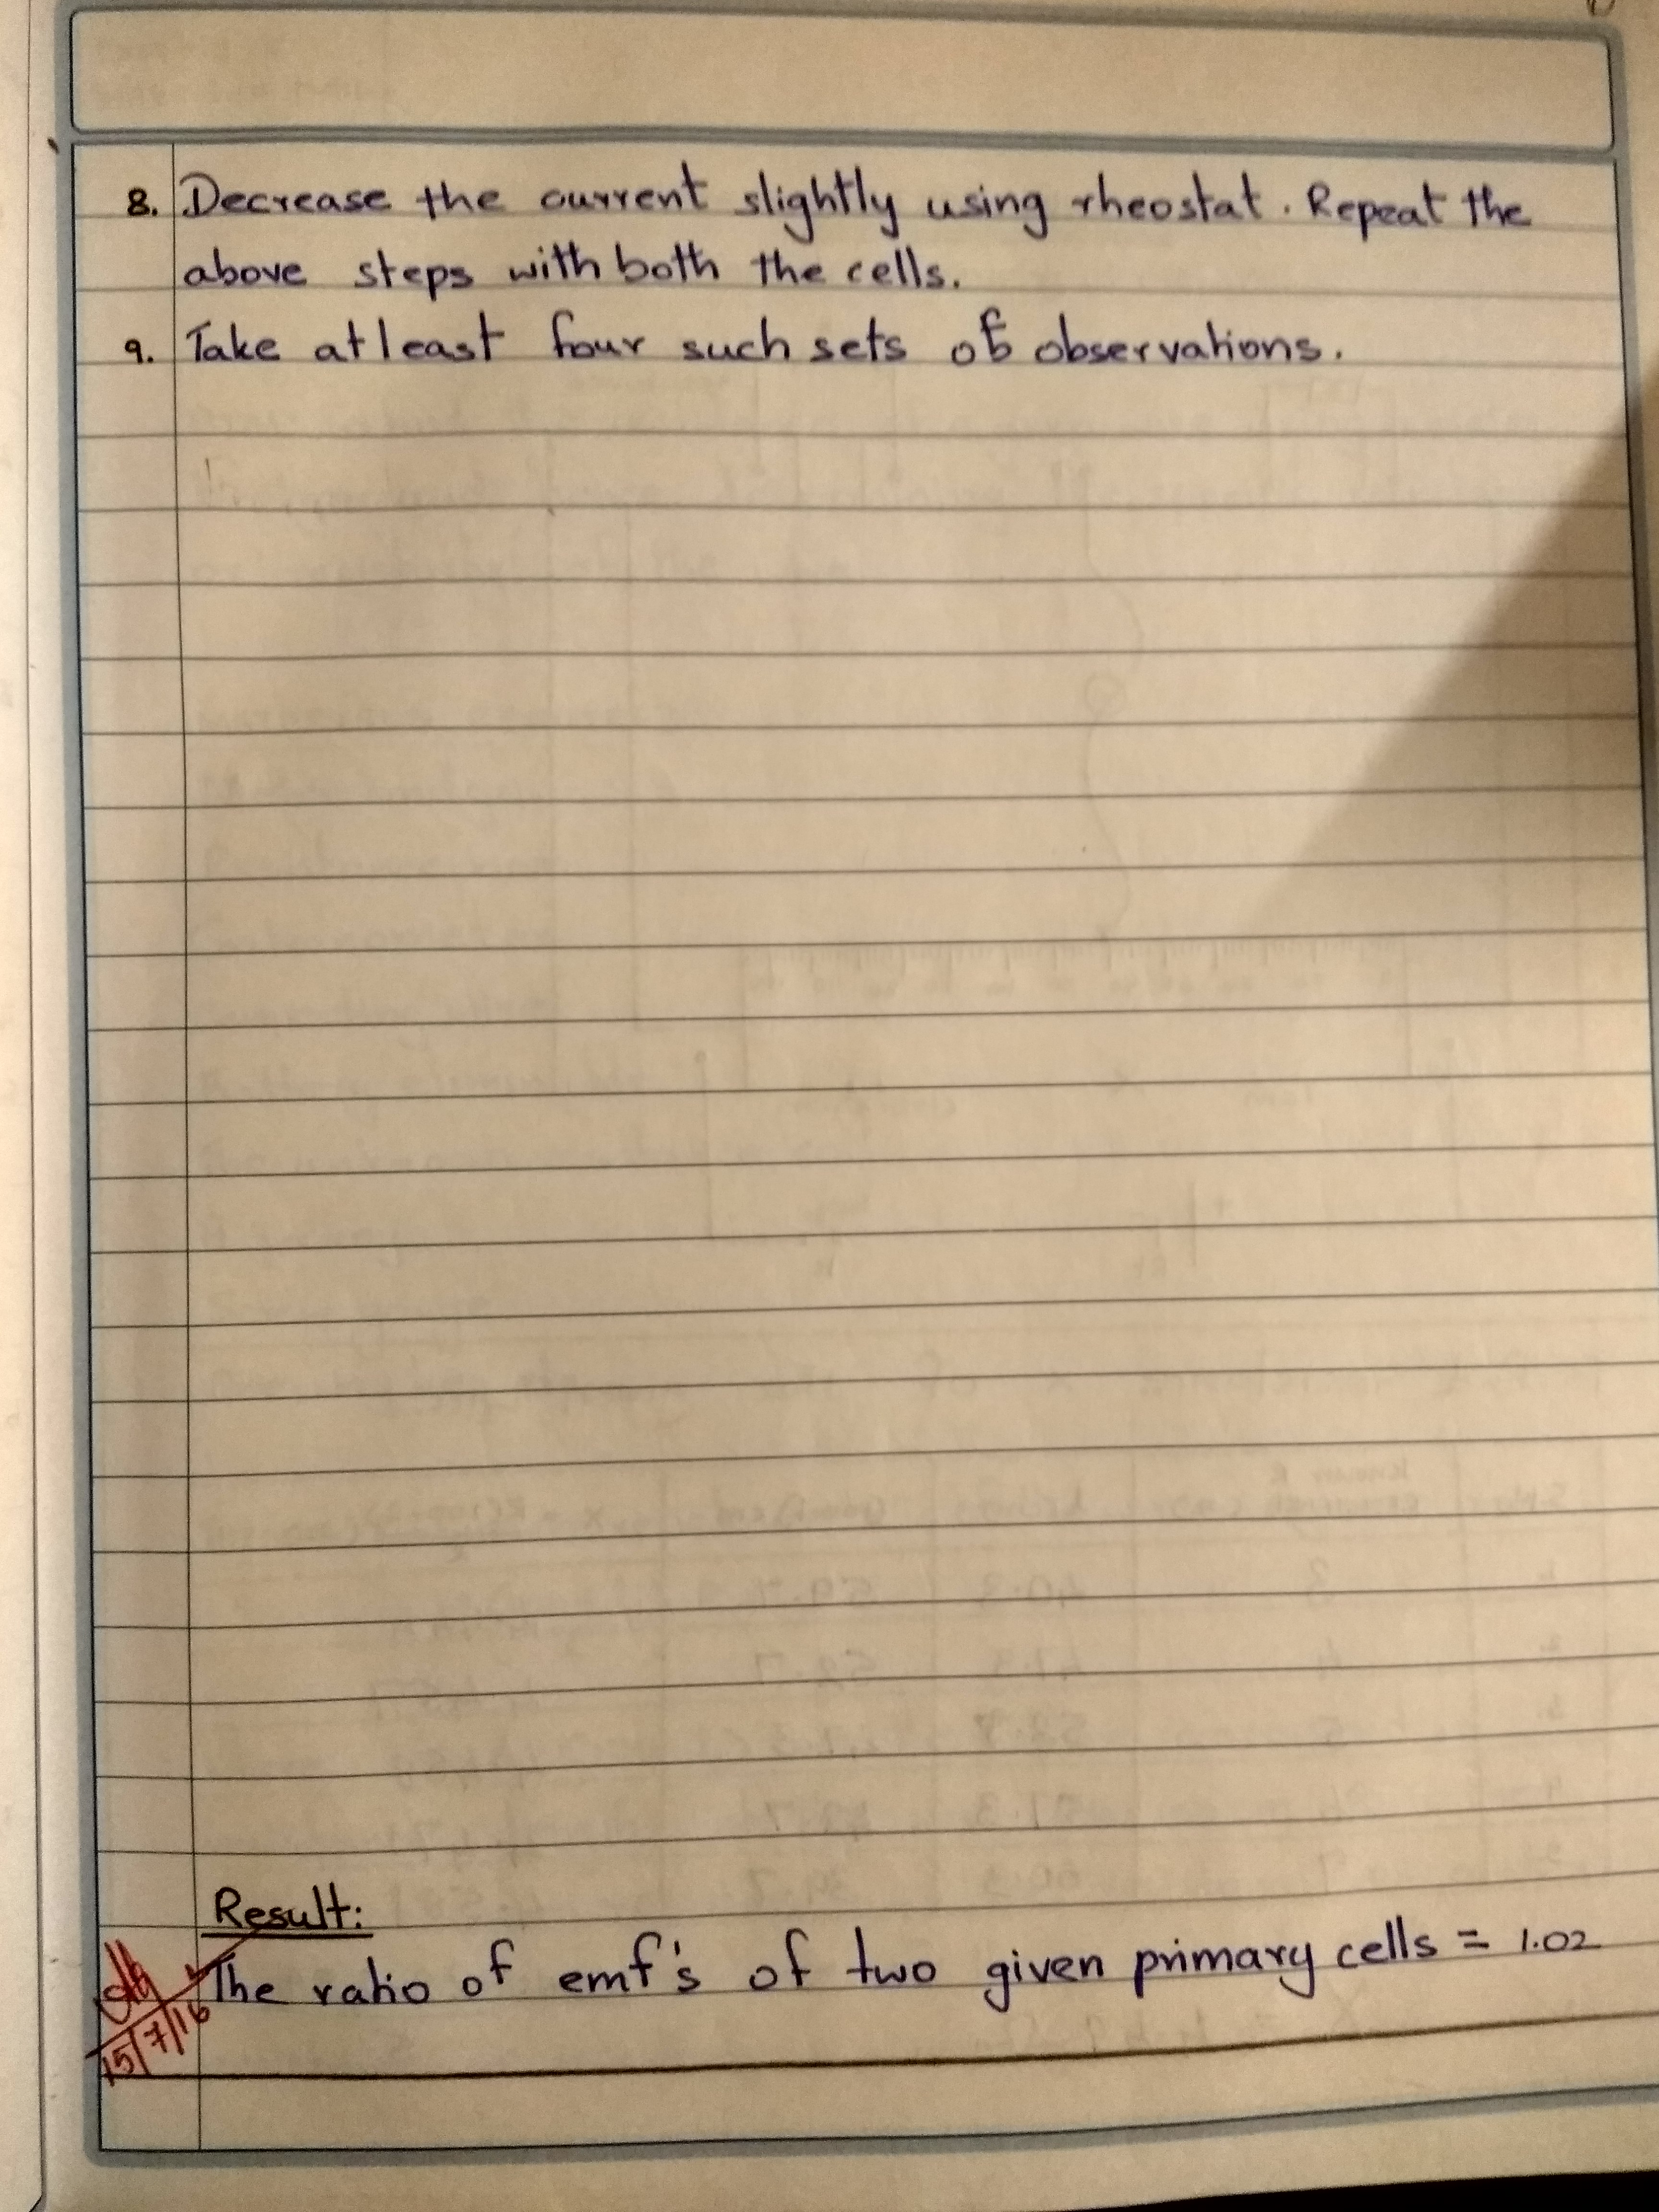 8. Decrease the current slightly using rheostat. Repeat the
above steps with both the cells.
9. Take atleast four such sets of observations.
Result:
The ratio of emf's of two given primary cells = 1.02
15/7/16